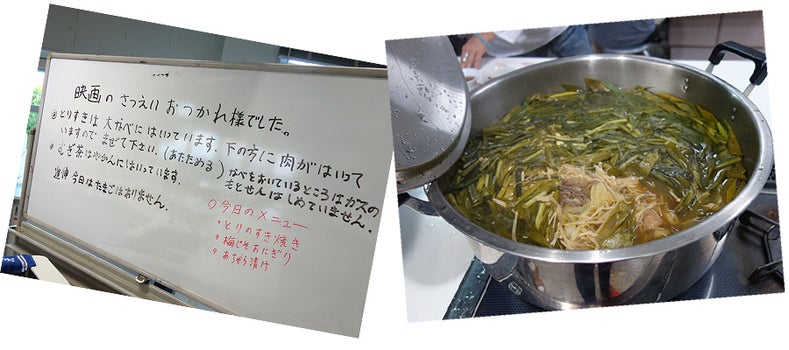 映画のさつえいおつかれ様でした。
とりすきは大なべにはいっています。下の方に肉がはいって
いますのでまぜて下さい。(あたためる)
なべをおいているところはガスの
もとせんはしめていません。
むぎ茶はやかんにはいっています。
追伸 今日はたまごはありません。
○今日のメニュー
・とりのすき焼き
・梅じそおにぎり
・あちゃら漬け